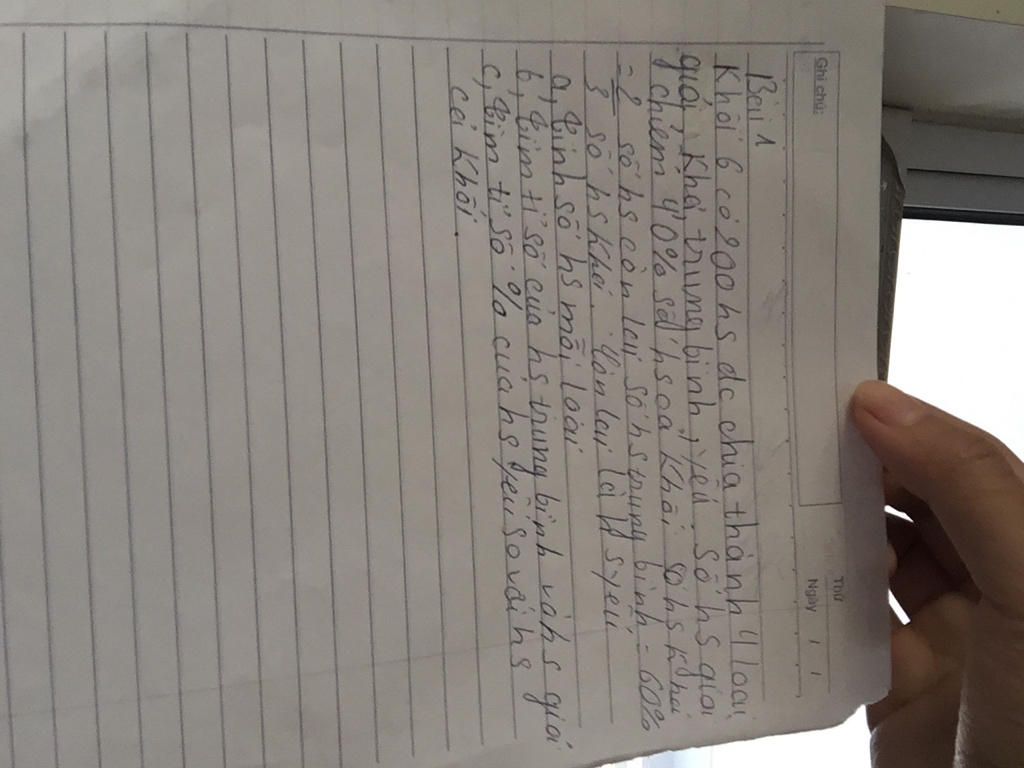 Ghi chú:
Thứ
Ngày / /
Bài 1
Khối 6 có 200 hs đc chia thành 4 loại,
giỏi, khá, trung bình, yếu. Số hs giỏi
chiếm 40% số hs cả khối. Số hs khá
= 2/3 số hs còn lại số hs trung bình = 60%
số hs khá. Còn lại là hs yếu
a, tính số hs mỗi loại
b, tìm tỉ số của hs trung bình và hs giỏi
c, tìm tỉ số % của hs yếu so với hs
cả khối.